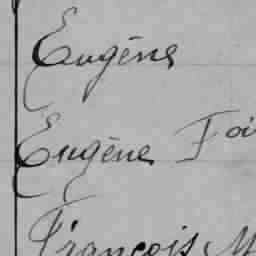 Eugène
Eugène Foi
François M